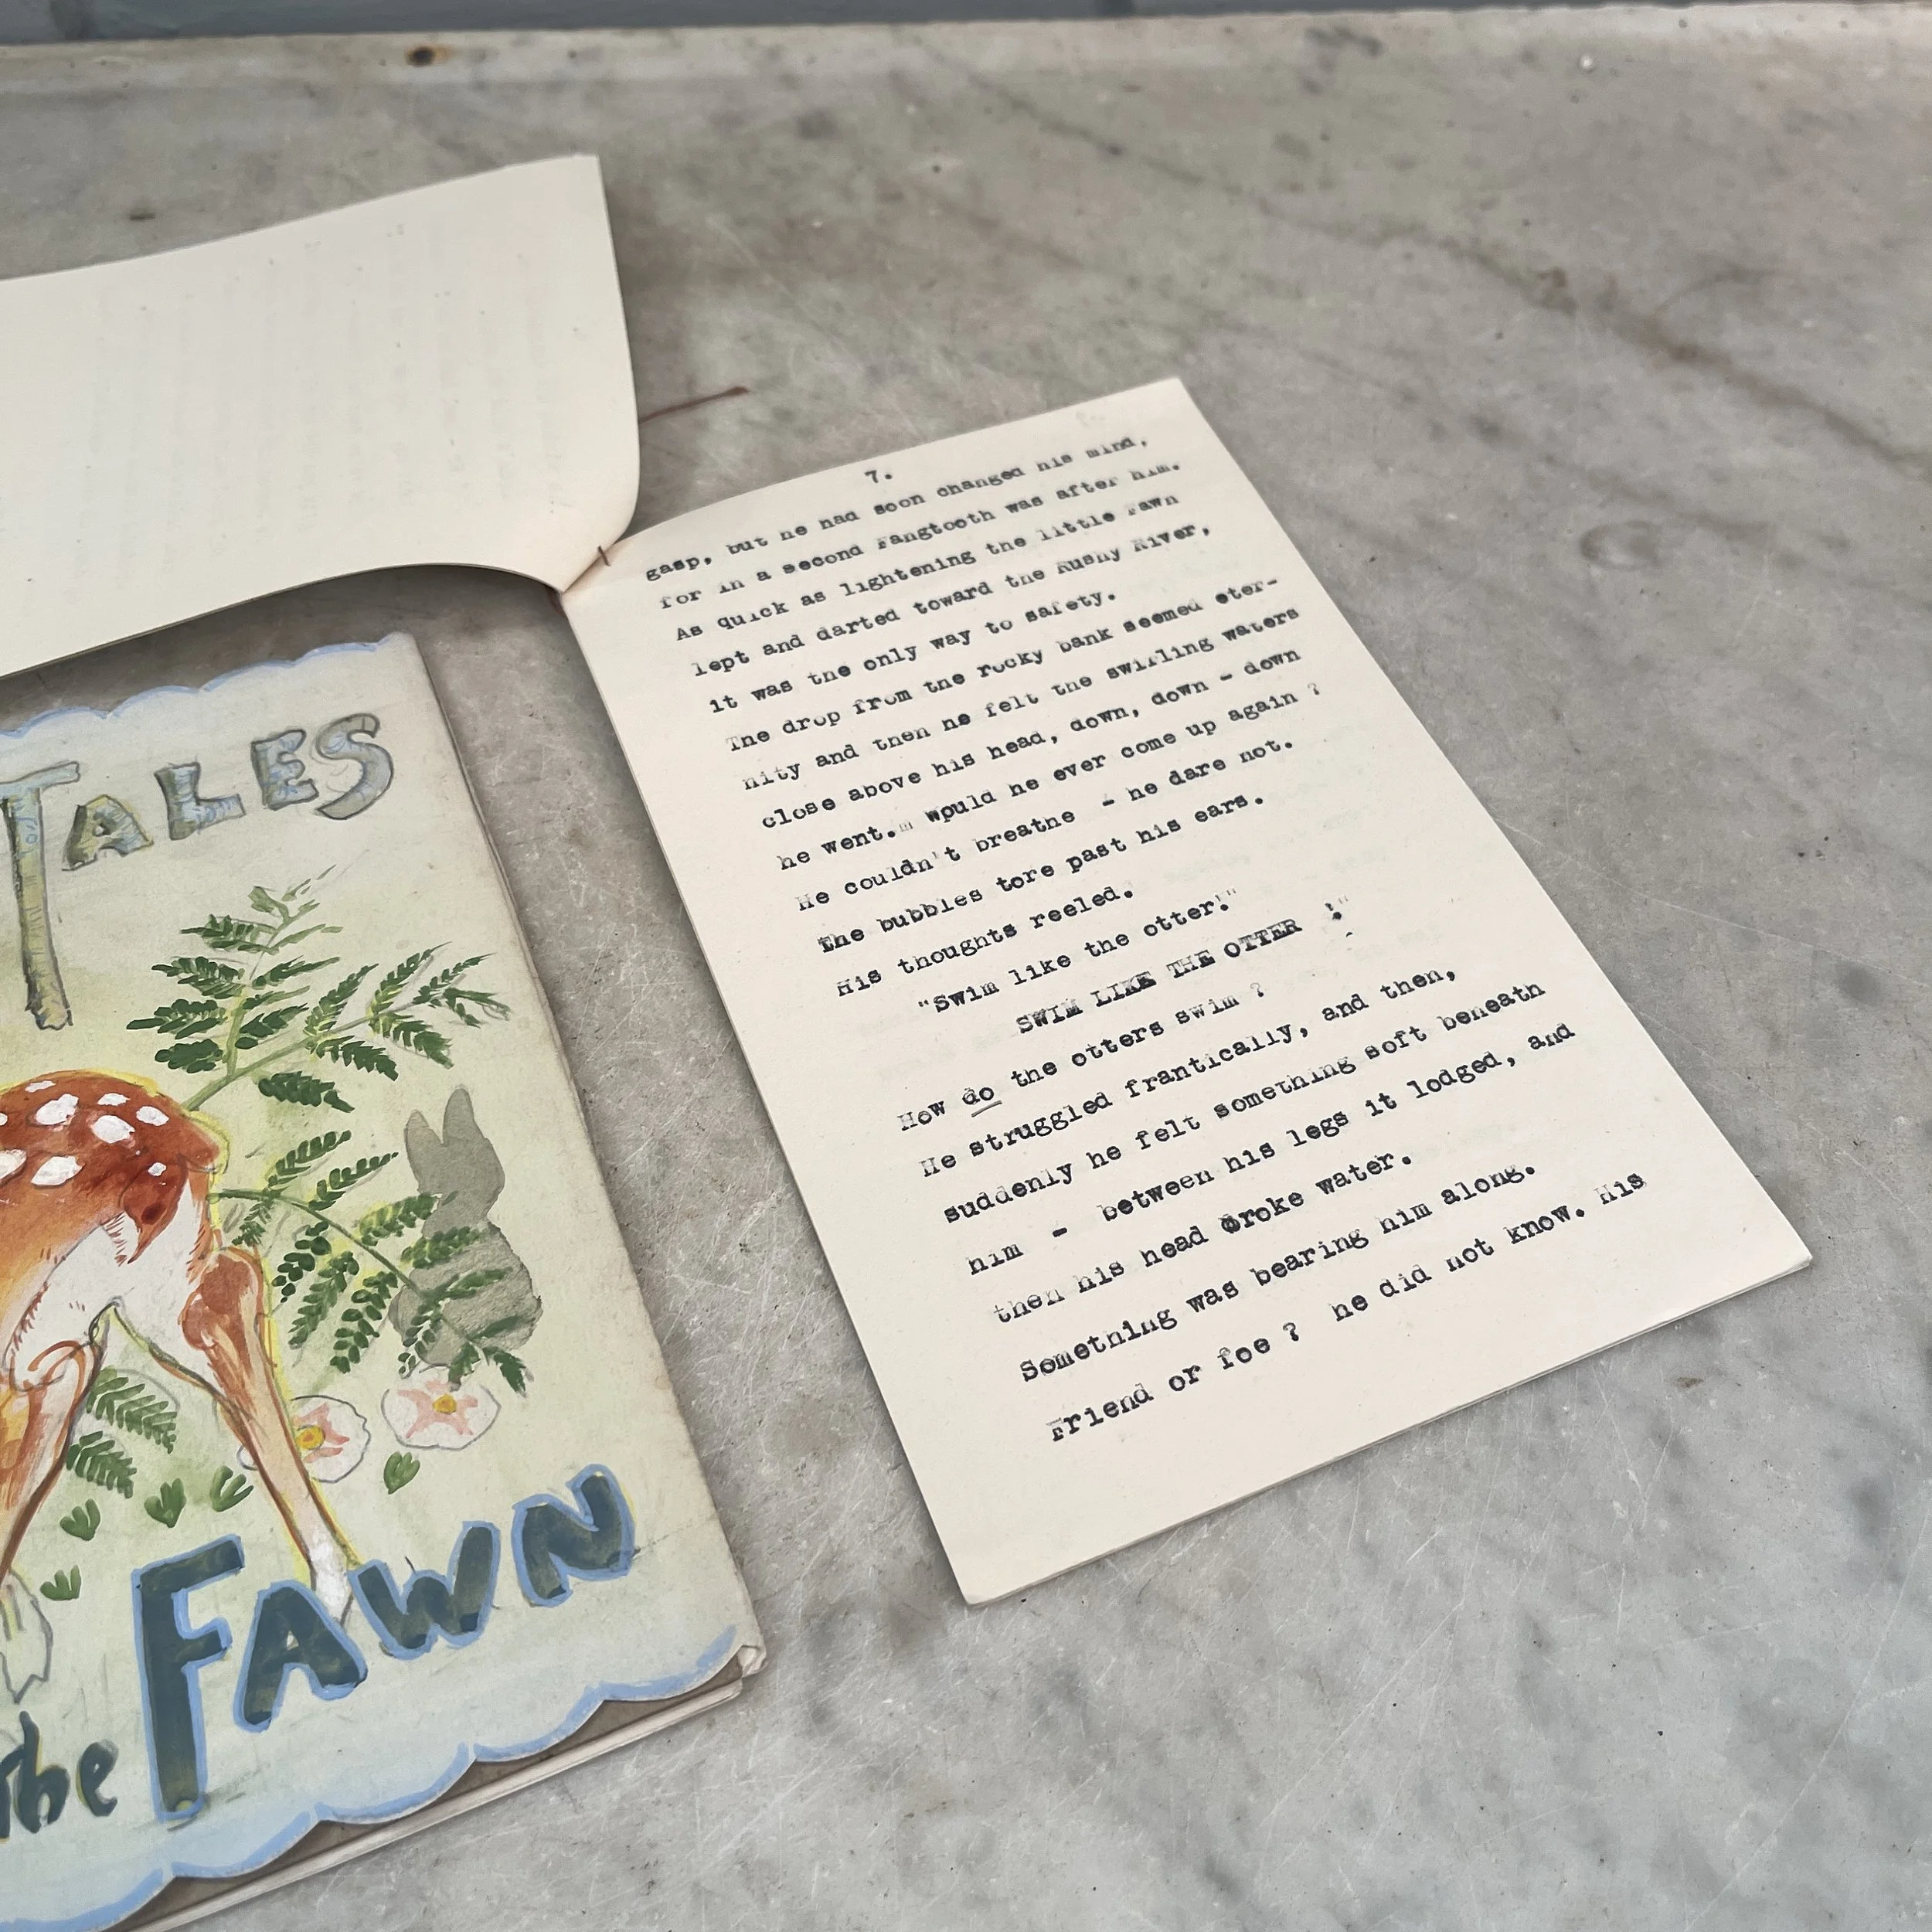 TALES
the FAWN
7.
gasp, but he had soon changed his mind,
for in a second Fangtooth was after him.
As quick as lightening the little Fawn
lept and darted toward the Rushy River,
it was the only way to safety.
The drop from the rocky bank seemed eter-
nity and then he felt the swirling waters
close above his head, down, down - down
he went. Would he ever come up again ?
He couldn't breathe - he dare not.
The bubbles tore past his ears.
His thoughts reeled.
"Swim like the otter!"
SWIM LIKE THE OTTER !"
How do the otters swim ?
He struggled frantically, and then,
suddenly he felt something soft beneath
him - between his legs it lodged, and
then his head broke water.
Something was bearing him along.
Friend or foe ? he did not know. His